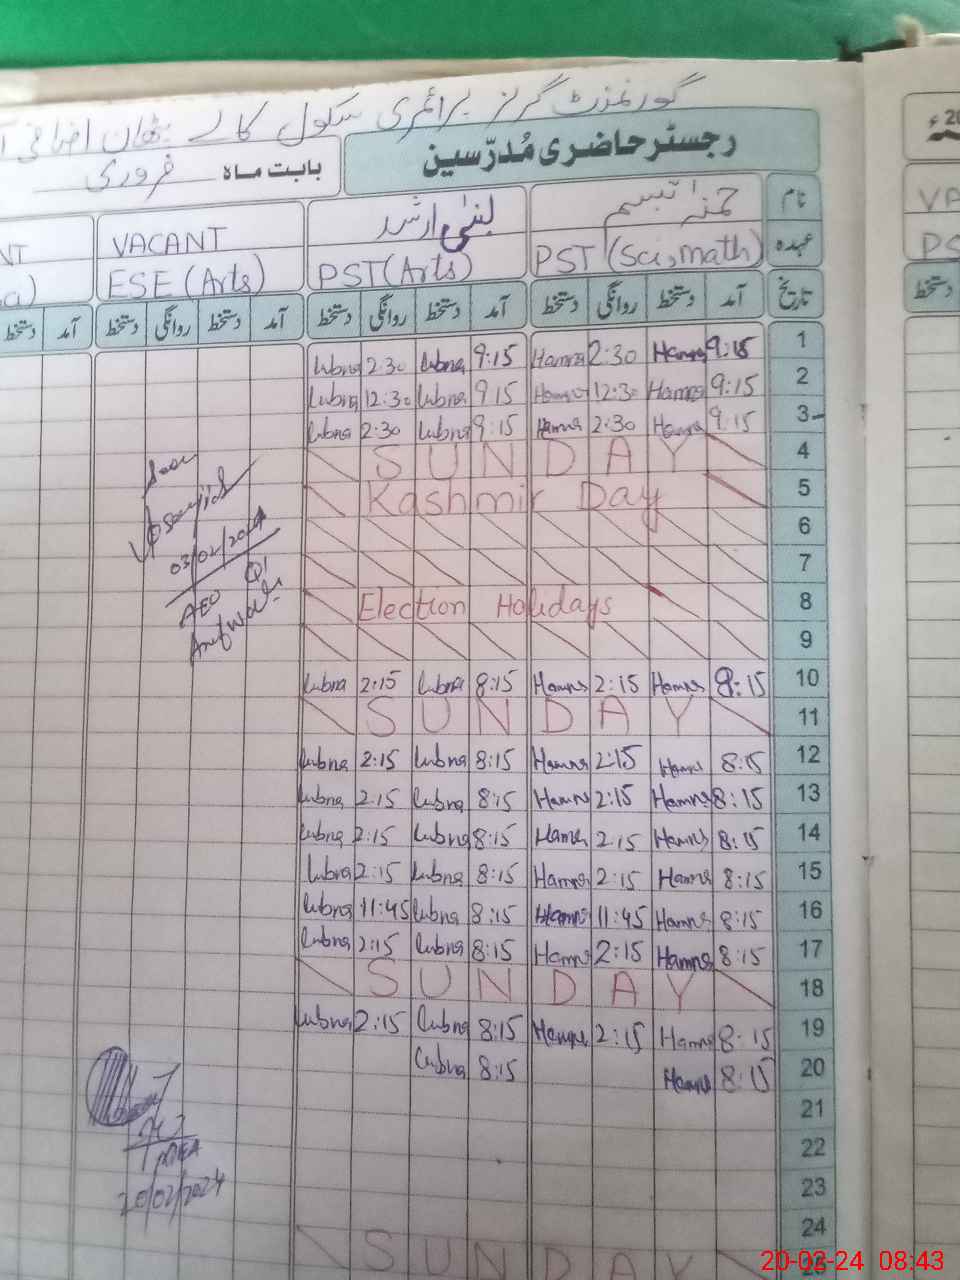 گورنمنٹ گرلز پرائمری سکول کالے پٹھان اضافی آ
رجسٹر حاضری مُدرّسین
بابت ماہ فروری
نام حمنہ تبسم لبنیٰ ارشد VACANT NT
عہدہ PST (Sci, math) PST (Arts) ESE (Arts)
تاریخ آمد دستخط روانگی دستخط آمد دستخط روانگی دستخط آمد دستخط روانگی دستخط آمد دستخط
1 9:15 Hamna 2:30 Hamna 9:15 Lubna 2:30 Lubna
2 9:15 Hamna 12:30 Hamna 9 15 Lubna 12:30 Lubna
3 9:15 Hamna 2:30 Hamna 9:15 Lubna 2:30 Lubna
4 SUNDAY
5 Kashmir Day
6
7
8 Election Holidays
9
10 8:15 Hamna 2:15 Hamna 8:15 Lubna 2:15 Lubna
11 SUNDAY
12 8:15 Hamna 2:15 Hamna 8:15 Lubna 2:15 Lubna
13 8:15 Hamna 2:15 Hamna 8:15 Lubna 2:15 Lubna
14 8:15 Hamna 2:15 Hamna 8:15 Lubna 2:15 Lubna
15 8:15 Hamna 2:15 Hamna 8:15 Lubna 2:15 Lubna
16 8:15 Hamna 11:45 Hamna 8:15 Lubna 11:45 Lubna
17 8:15 Hamna 2:15 Hamna 8:15 Lubna 2:15 Lubna
18 SUNDAY
19 8:15 Hamna 2:15 Hamna 8:15 Lubna 2:15 Lubna
20 8:15 Hamna 8:15 Lubna
21
22
23
24
25 SUNDAY
03/02/2024
AEO
20/02/2024
VA
PS
دستخط
20-02-24 08:43